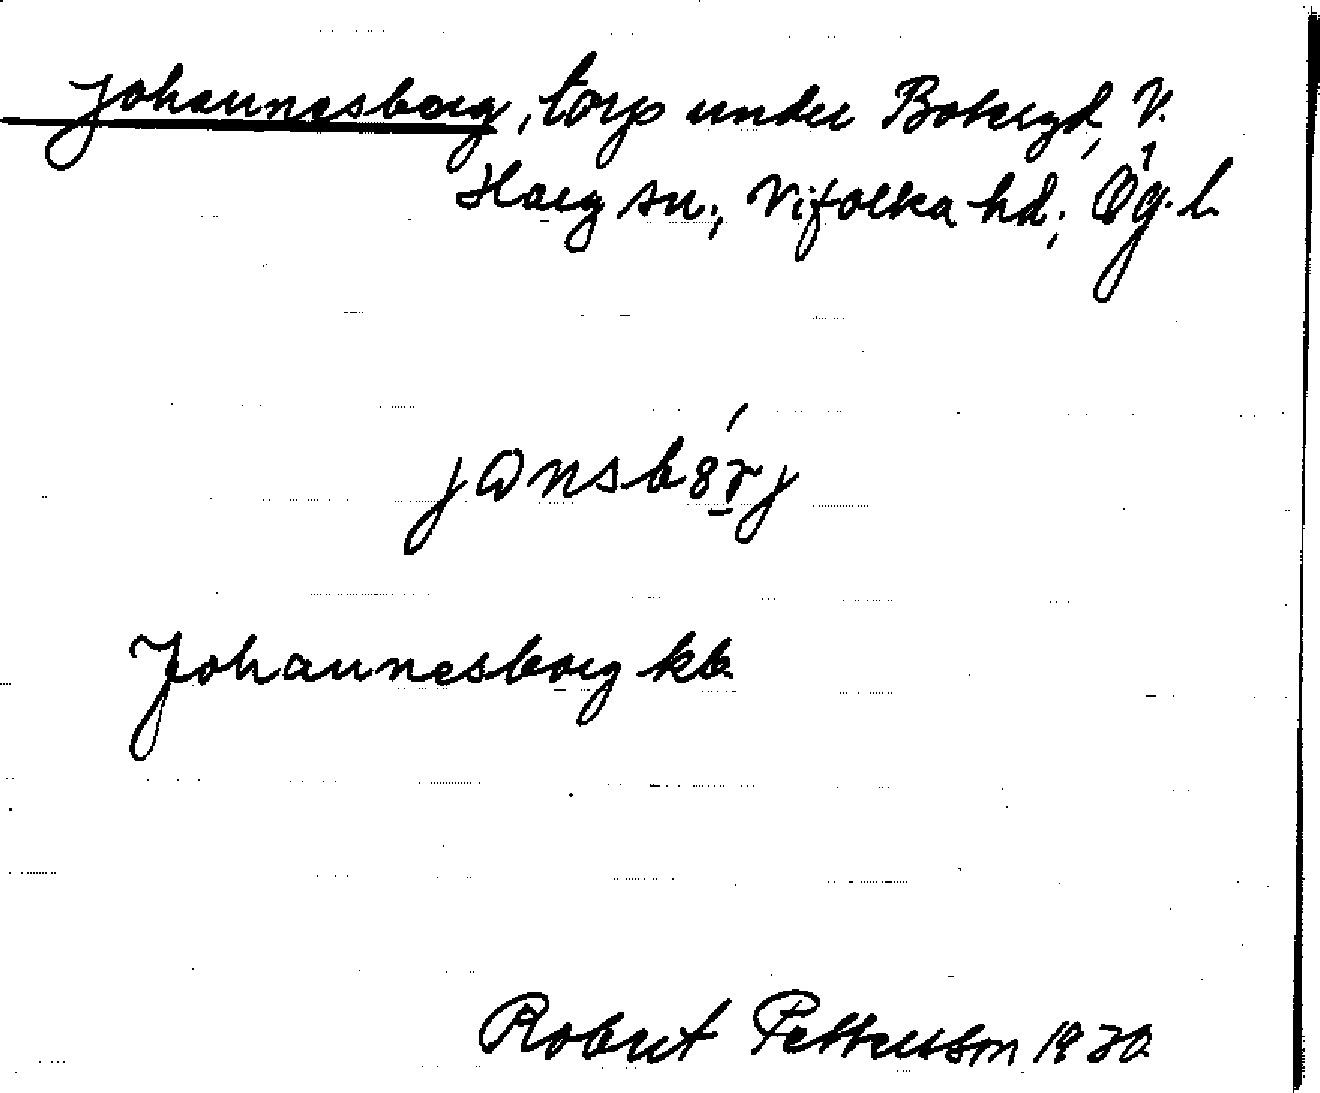 Johannesborg, torp under Bokegd, V.
Harg sn., Vifolka hd., Ög. l.
jɑnsbórj
Johannesborg kb.
Robert Pettersson 1930